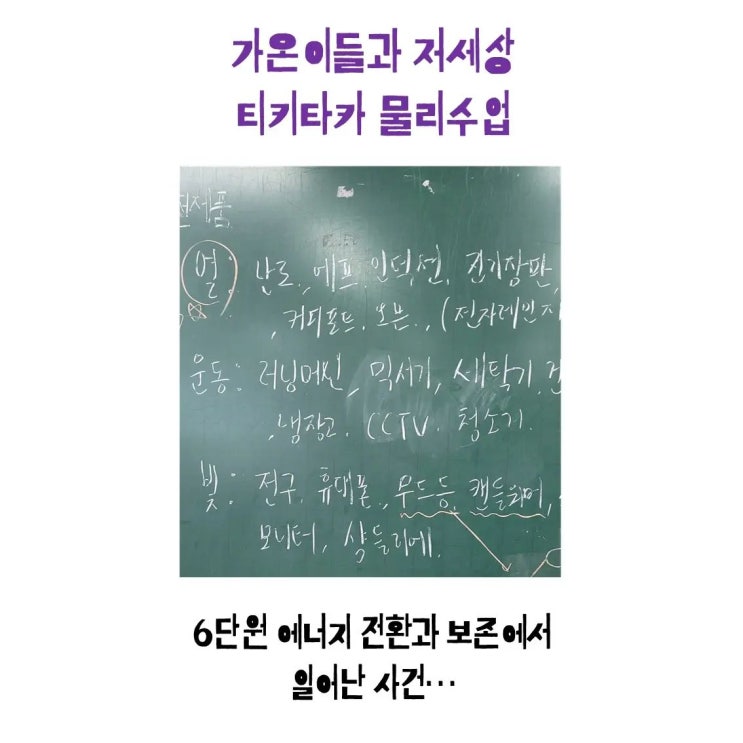 가온이들과 저세상
티키타카 물리수업
전제품
열: 난로, 에프, 인덕션, 전기장판,
, 커피포트, 오븐, (전자레인지
운동: 러닝머신, 믹서기, 세탁기, 건
, 냉장고, CCTV, 청소기.
빛: 전구, 휴대폰, 무드등, 캔들워머,
모니터, 샹들리에.
6단원 에너지 전환과 보존에서
일어난 사건…